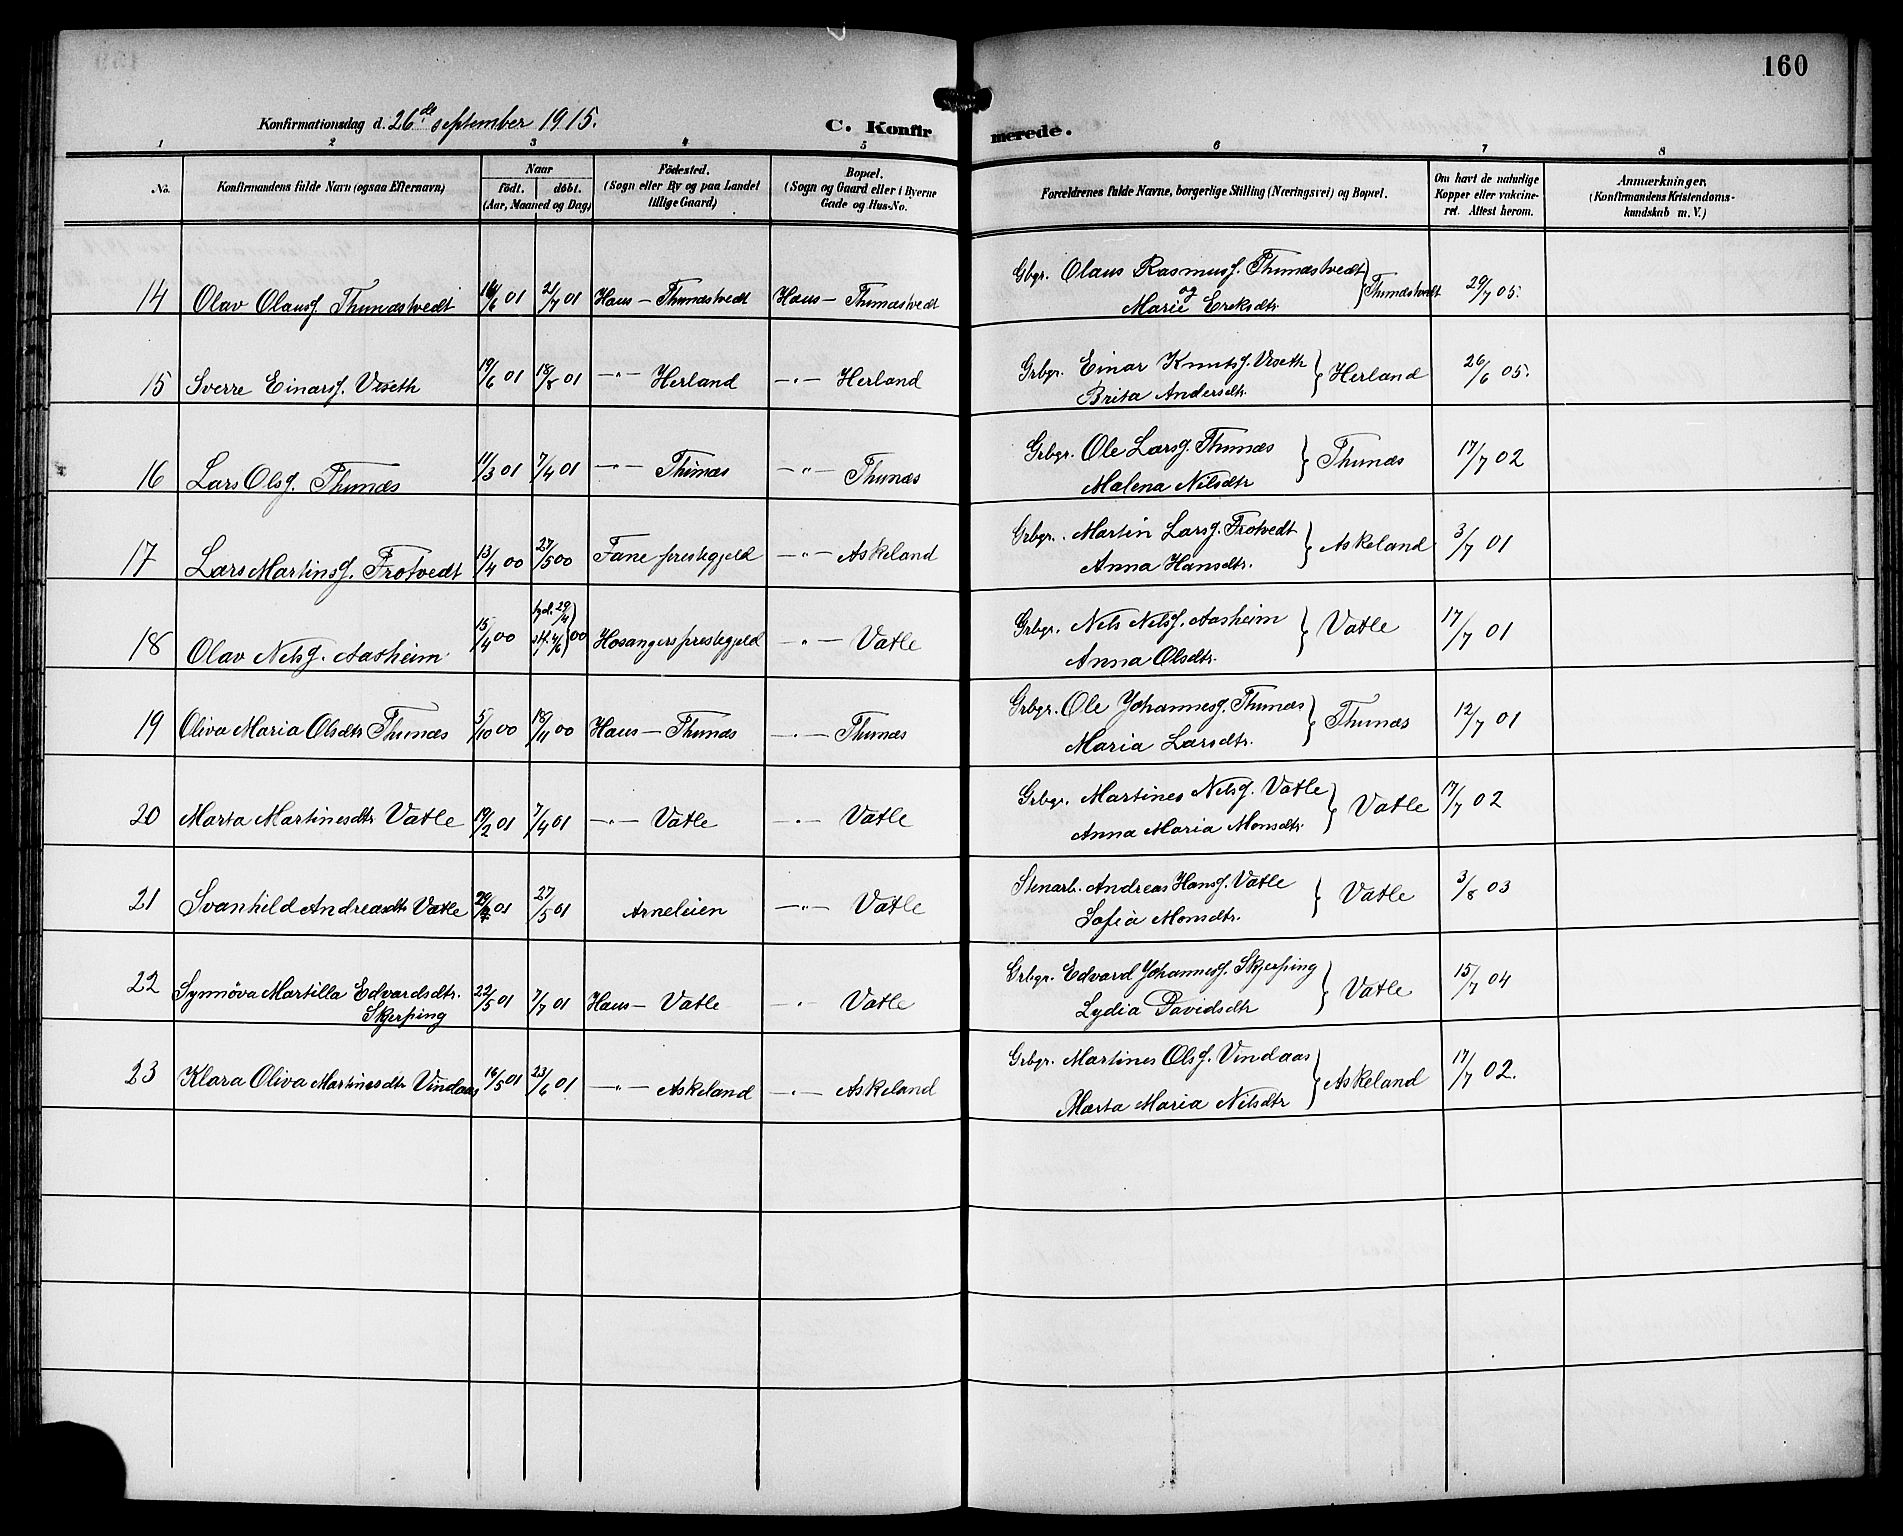 160
Konfirmationsdag d. 26de september 1915.
C. Konfirmerede.
1 2 3 4 5 6 7 8
No.
Konfirmandens fulde Navn (ogsaa Efternavn)
Naar
født. døbt.
(Aar, Maaned og Dag)
Fødested.
(Sogn eller By og paa Landet
tillige Gaard)
Bopæl.
(Sogn og Gaard eller i Byerne
Gade og Hus-No.
Forældrenes fulde Navne, borgerlige Stilling (Næringsvei) og Bopæl.
Om havt de naturlige
Kopper eller vakcine-
ret. Attest herom.
Anmærkninger.
(Konfirmandens Kristendoms-
kundskab m. V.)
Gbgr. Olaus Rasmusf. Thunæstvedt
og
14 Olav Olausf. Thunæstvedt 16/6 01 21/7 01 Haus — Thunæstvedt Haus — Thunæstvedt Marie Ereksdtr. } Thunæstvedt 29/7 05.
Grbgr. Einar Knutsf. Viseth
15 Sverre Einarsf. Viseth 19/6 01 18/8 01 —"— Herland —"— Herland Brita Andersdtr. } Herland 26/6 05.
Grbgr. Ole Larsf. Thunæs
16 Lars Olsf. Thunæs 11/3 01 7/4 01 —"— Thunæs —"— Thunæs Malena Nilsdtr } Thunæs 17/7 02
Grbgr. Martin Larsf. Frotvedt
17 Lars Martinsf. Frotvedt 13/4 00 27/5 00 Fane prestegjeld —"— Askeland Anna Hansdtr. } Askeland 3/7 01
Grbgr. Nels Nelsf. Aasheim
18 Olav Nelsf. Aasheim 15/4 00 hjd. 29/4 stf. 4/6 } 00 Hosangers prestegjeld —"— Vatle Anna Olsdtr. } Vatle 17/7 01
Grbgr. Ole Johannesf. Thunæs
19 Oliva Maria Olsdtr Thunæs 5/10 00 18/11 00 Haus — Thunæs —"— Thunæs Maria Larsdtr. } Thunæs 12/7 01
Grbgr. Martines Nelsf. Vatle
20 Marta Martinesdtr Vatle 19/2 01 7/4 01 —"— Vatle —"— Vatle Anna Maria Monsdtr } Vatle 17/7 02
Stenarb. Andreas Hansf. Vatle
21 Svanhild Andreasdtr Vatle 01 27/5 01 Arneleien —"— Vatle Sofia Monsdtr. } Vatle 3/8 03
Grbgr. Edvard Johannesf. Skjerping
22 Synnöva Martilla Edvardsdtr. 22/5 01 7/7 01 Haus — Vatle —"— Vatle Lydia Davidsdtr } Vatle 15/7 04
Skjerping
Grbgr. Martines Olsf. Vindaas
23 Klara Oliva Martinesdtr Vindaas 16/5 01 23/6 01 —"— Askeland —"— Askeland Marta Maria Nilsdtr } Askeland 17/7 02.